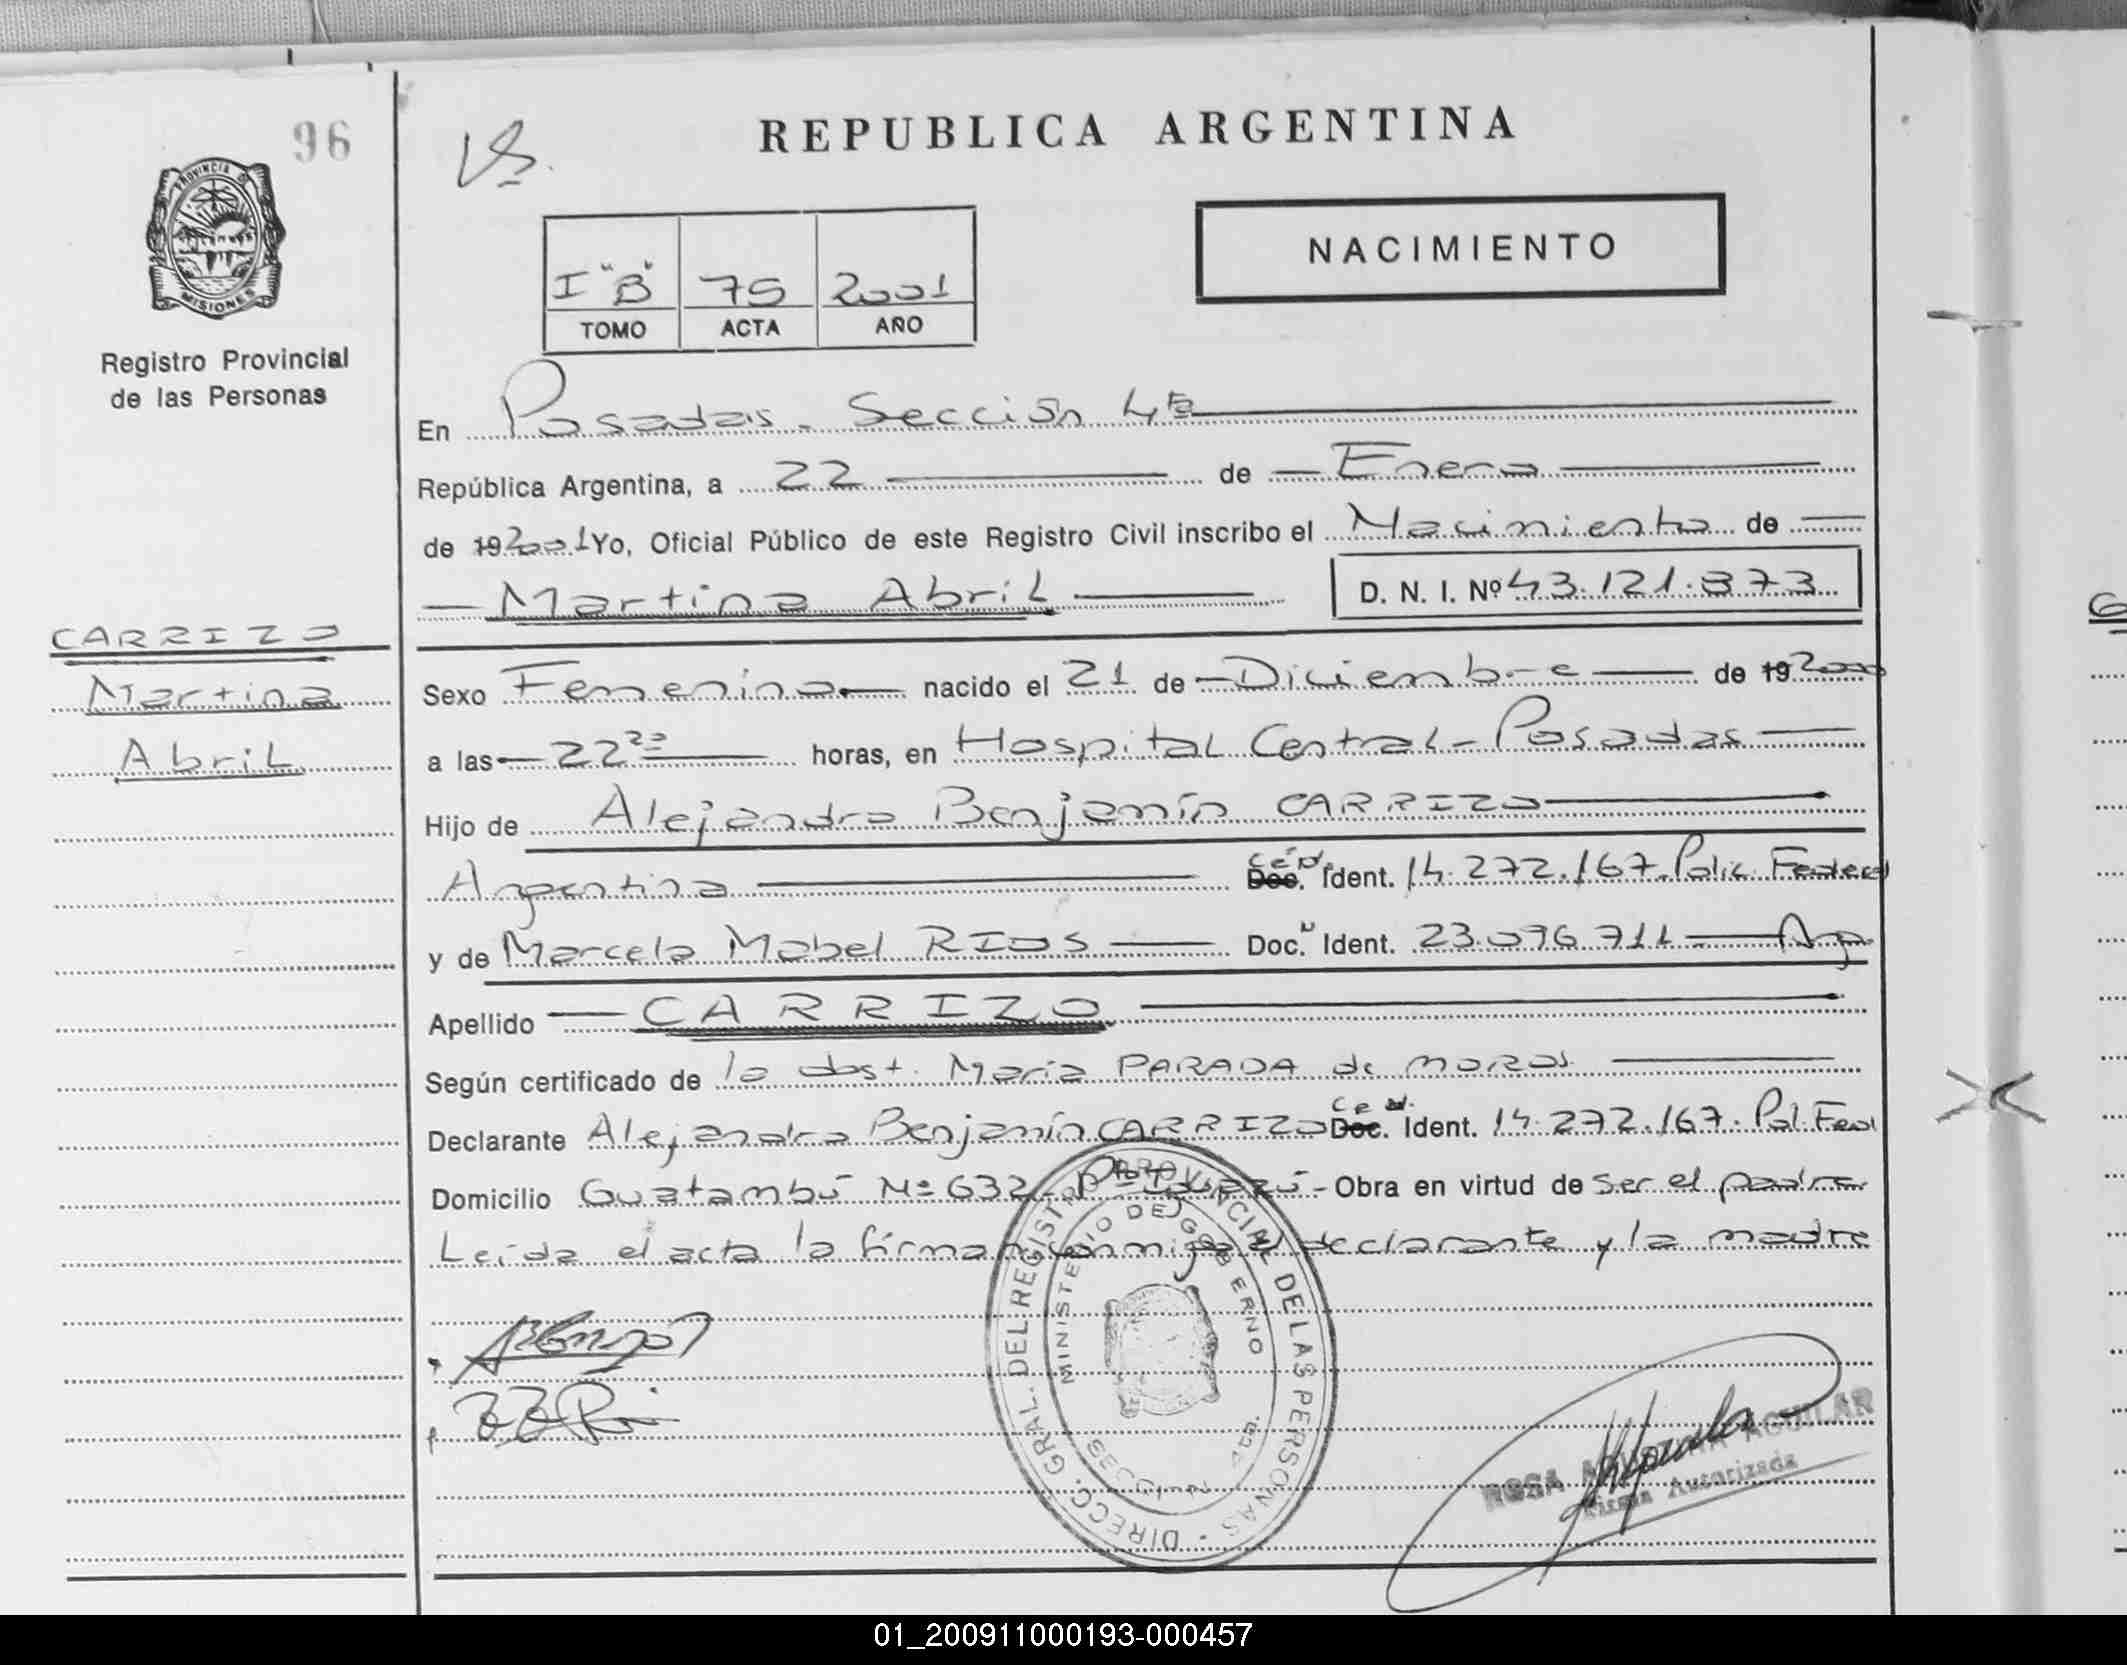 96
PROVINCIA DE
MISIONES
Registro Provincial
de las Personas
CARRIZO
Martina
Abril
REPUBLICA ARGENTINA
I "B" 75 2001
TOMO ACTA AÑO
NACIMIENTO
En Posadas - Sección 4ta
República Argentina, a 22 de Enero
de 19 2001 Yo, Oficial Público de este Registro Civil inscribo el Nacimiento de
Martina Abril D. N. I. Nº 43.121.373
Sexo Femenino nacido el 21 de Diciembre de 19 2000
a las 22 horas, en Hospital Central - Posadas
Hijo de Alejandro Benjamín CARRIZO
Argentina Céd. Doc. Ident. 14.272.167. Polic. Federal
y de Marcela Mabel RIOS Doc. Ident. 23.096.711 Arg
Apellido CARRIZO
Según certificado de la obst. María PARADA de
Declarante Alejandro Benjamín CARRIZO Ced. Doc. Ident. 14.272.167. Pol. Fed
Domicilio Guatambú Nº 632 - Pto Iguazú - Obra en virtud de ser el padre
Leída el acta la firman conmigo el declarante y la madre
DIRECC. GRAL. DEL REGISTRO PROVINCIAL DE LAS PERSONAS
MINISTERIO DE GOBIERNO
SECCION 4ta.
ROSA AGUILAR
Firma Autorizada
01_200911000193-000457